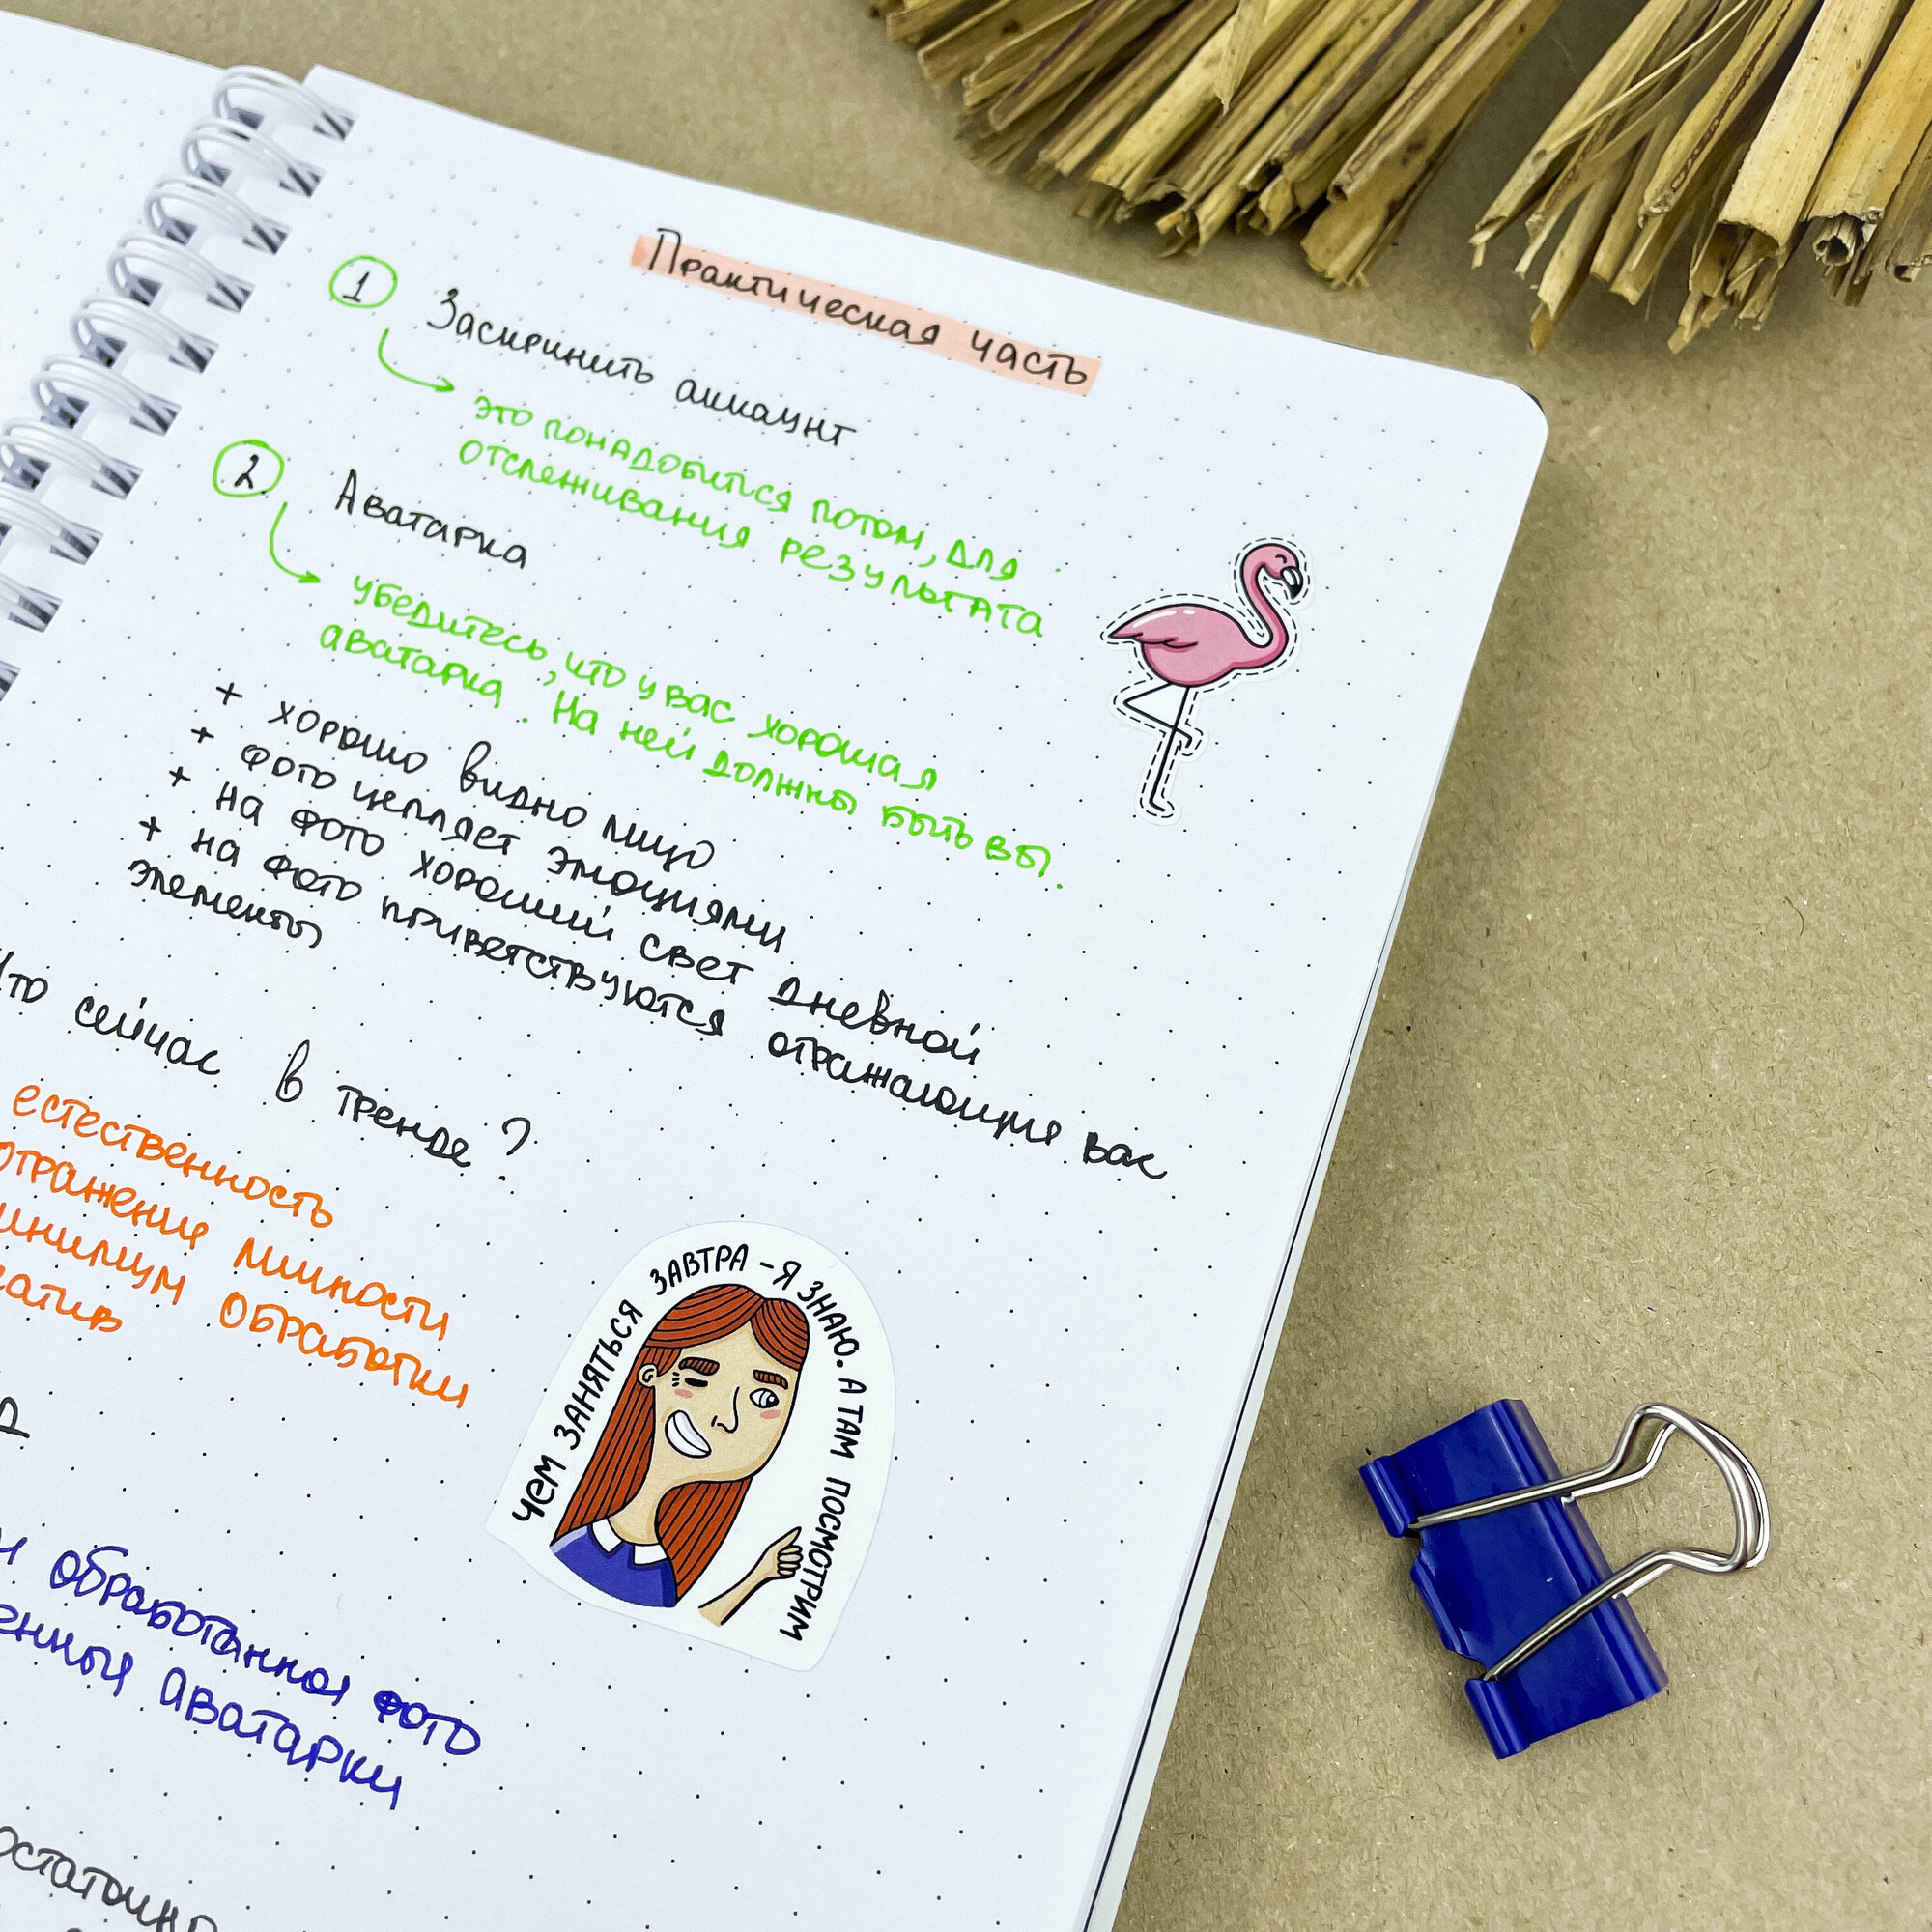 Практическая часть
1 Заскринить аккаунт
это понадобится потом, для
отслеживания результата
2 Аватарка
убедитесь, что у вас хорошая
аватарка. На ней должны быть вы.
+ хорошо видно лицо
+ фото цепляет эмоциями
+ на фото хороший свет дневной
+ на фото приветствуются отражающие вас
элементы
Что сейчас в тренде?
естественность
отражение личности
обработки
ЧЕМ ЗАНЯТЬСЯ ЗАВТРА - Я ЗНАЮ. А ТАМ ПОСМОТРИМ
обработанное фото
аватарки